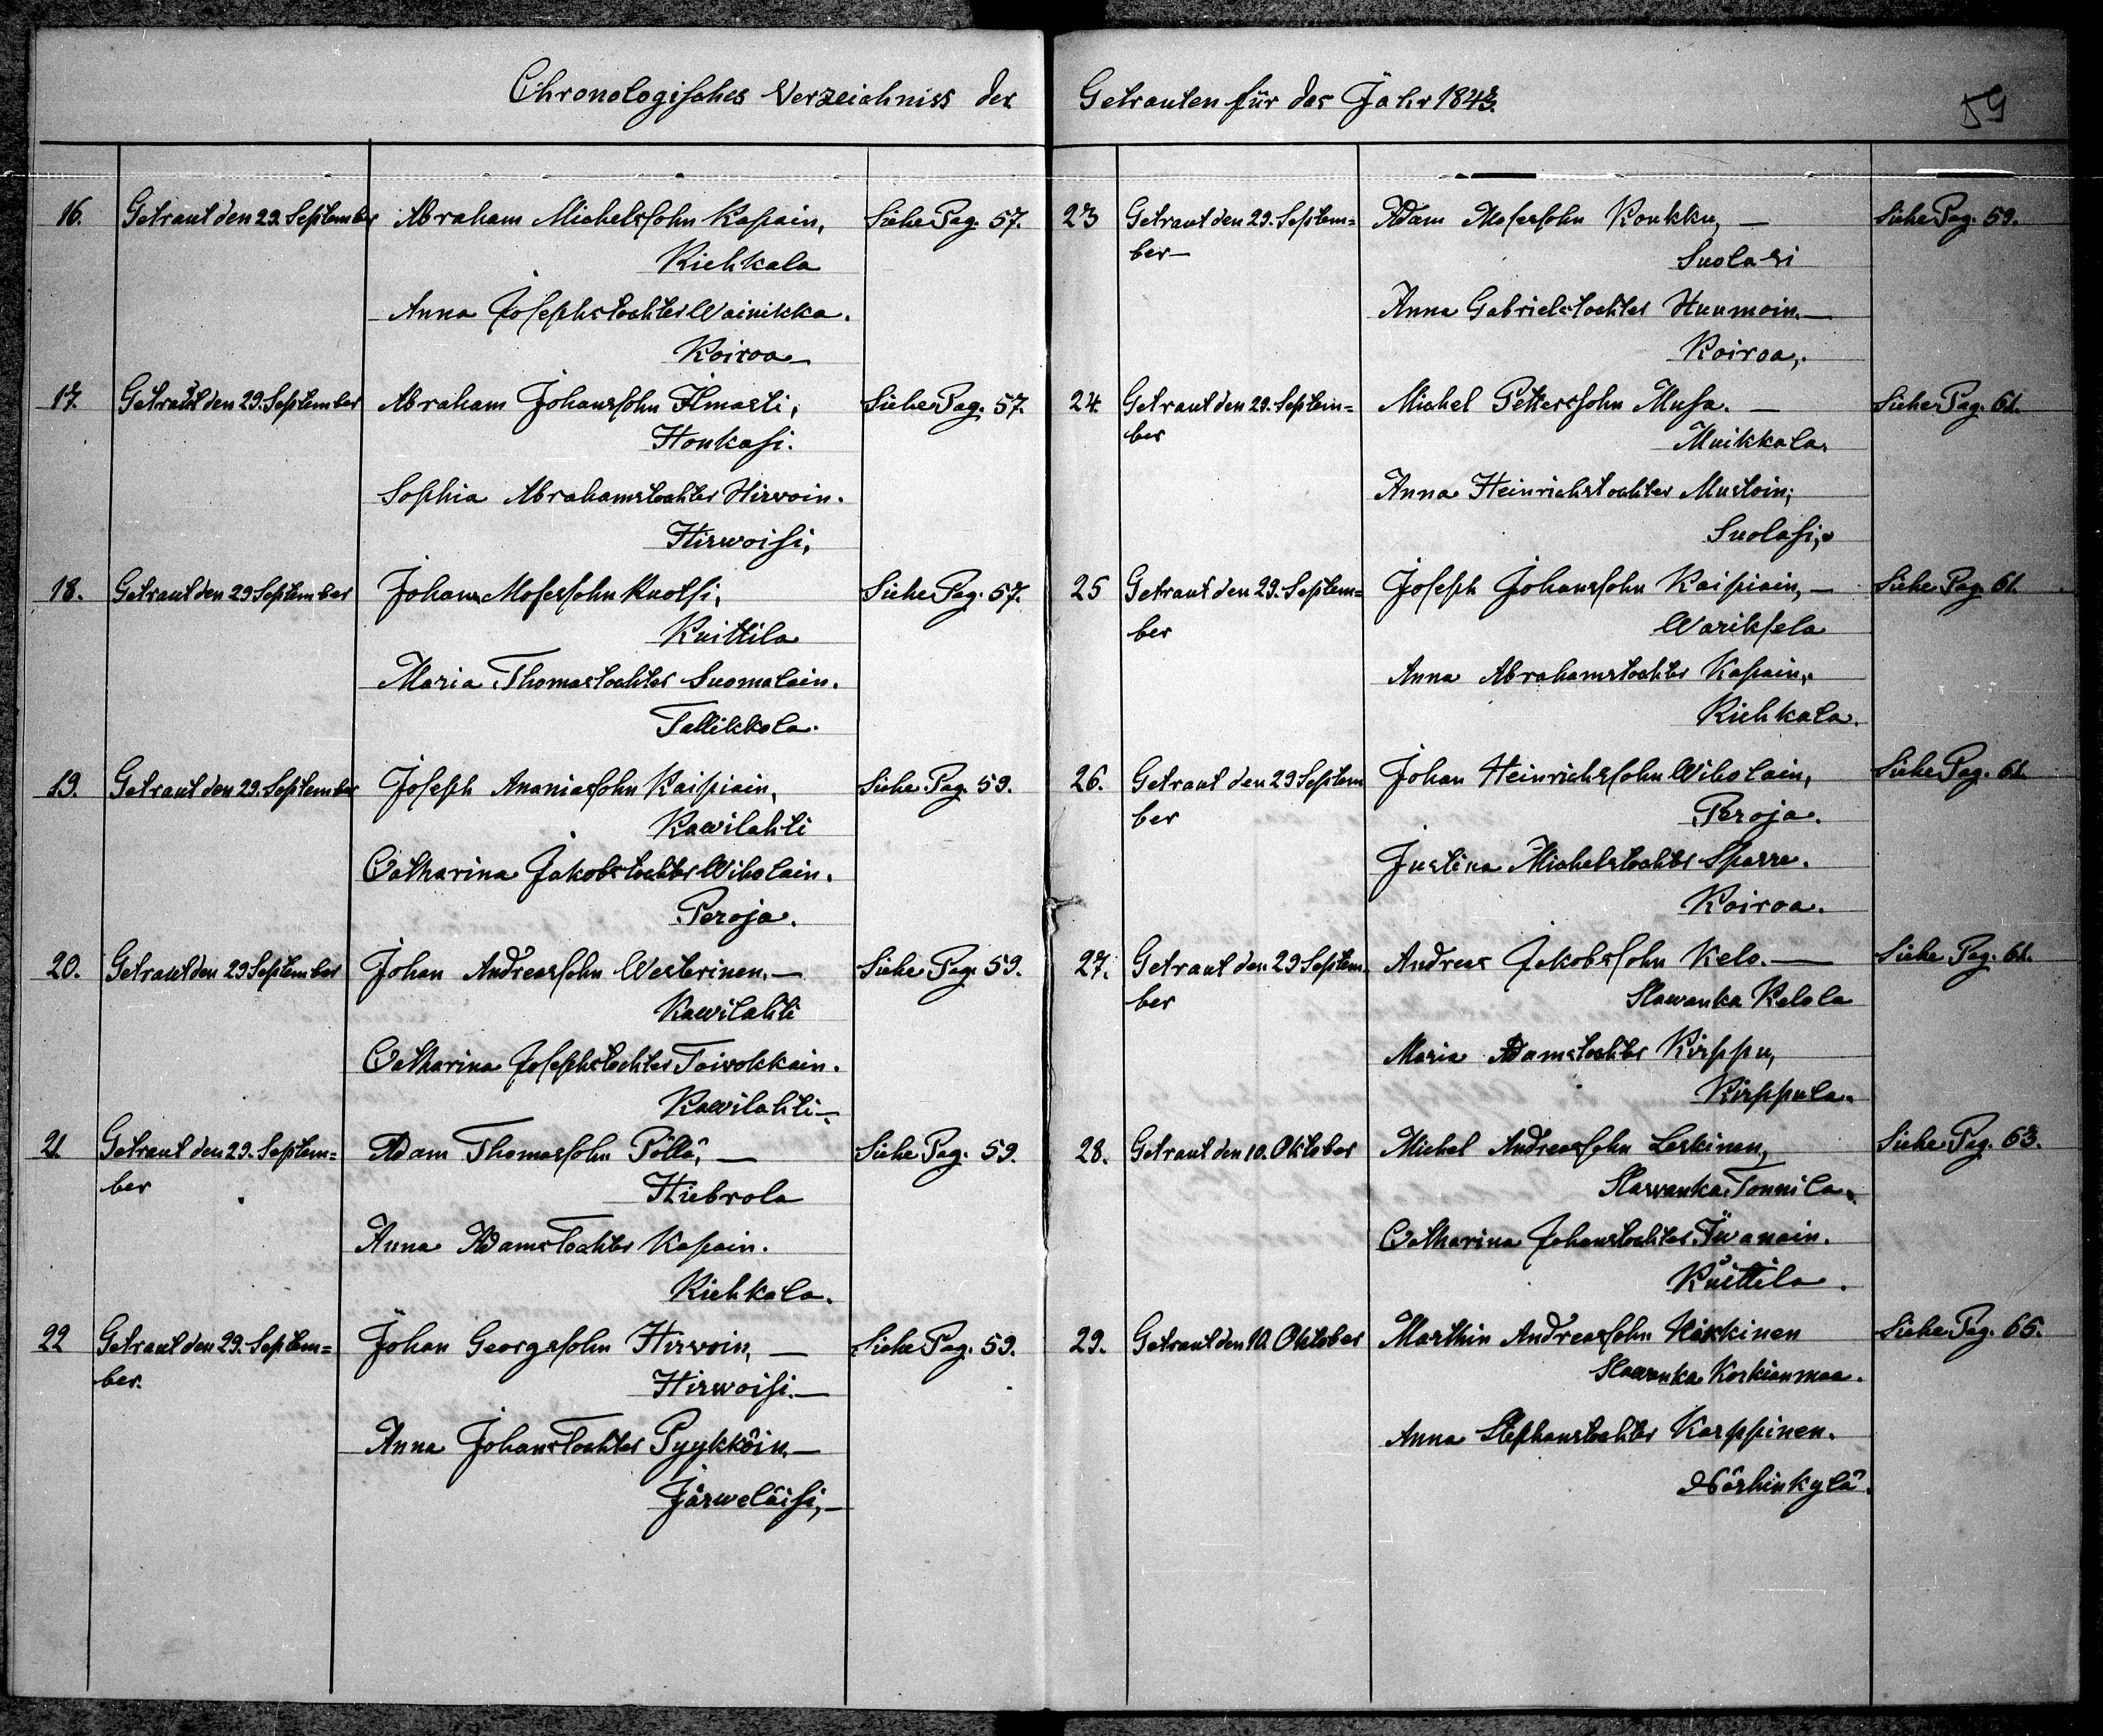 Chronologisches Verzeichniss der
16. Getraut den 29. September Abraham Michelssohn Kapain, Siehe Pag. 57.
Riehkala
Anna Josephstochter Wainikka.
Koiroa
17. Getraut den 29. September Abraham Johanssohn Ilmasti, Siehe Pag. 57.
Honkasi.
Sophia Abrahamstochter Hirwoin.
Hirwoisi,
18. Getraut den 29 September Johan Mosessohn Ruotsi, Siehe Pag. 57.
Kuittila
Maria Thomastochter Suomalain.
Tallikkola.
19. Getraut den 29. September Joseph Ananiassohn Kaipiain, Siehe Pag. 59.
Kawilahti
Catharina Jakobstochter Wiholain.
Peroja.
20. Getraut den 29 September Johan Andreassohn Westerinen. — Siehe Pag. 59.
Kawilahti
Catharina Josephstochter Toiwokkain.
Kawilahti —
21 Getraut den 29. Septem= Adam Thomassohn Pöllä, — Siehe Pag. 59.
ber Hiebrola
Anna Adamstochter Kapain.
Riehkala.
22 Getraut den 29. Septem= Johan Georgssohn Hirwoin, — Siehe Pag. 59.
ber. Hirwoisi. —
Anna Johanstochter Pyykköin —
Järweläisi, —
Getrauten für das Jahr 1843.
59
23 Getraut den 29. Septem= Adam Mosessohn Koukku, — Siehe Pag. 59.
ber — Suolasi
Anna Gabrielstochter Huumoin. —
Koiroa,
24. Getraut den 29. Septem= Michel Petterssohn Musa. — Siehe Pag. 61.
ber Muikkala.
Anna Heinrichstochter Mustoin,
Suolasi,
25 Getraut den 29. Septem= Joseph Johanssohn Kaipiain, — Siehe Pag. 61.
ber Wariksela
Anna Abrahamstochter Kapain,
Riehkala.
26. Getraut den 29 Septem Johan Heinrichssohn Wiholain, Siehe Pag. 61.
ber Peroja.
Justina Michelstochter Sparre.
Koiroa.
27. Getraut den 29 Septem Andreas Jakobssohn Kelo. — Siehe Pag. 61.
ber Slawanka Kelola
Maria Adamstochter Kirppu,
Kirppula.
28. Getraut den 10. Oktober Michel Andreassohn Leskinen, Siehe Pag. 63.
Slawanka Tonnila.
Catharina Johanstochter Iwanain.
Kuittila.
29. Getraut den 10. Oktober Marthin Andreassohn Häkkinen Siehe Pag. 65.
Slawanka Korkianmaa.
Anna Stephanstochter Karppinen.
Närhinkylä.